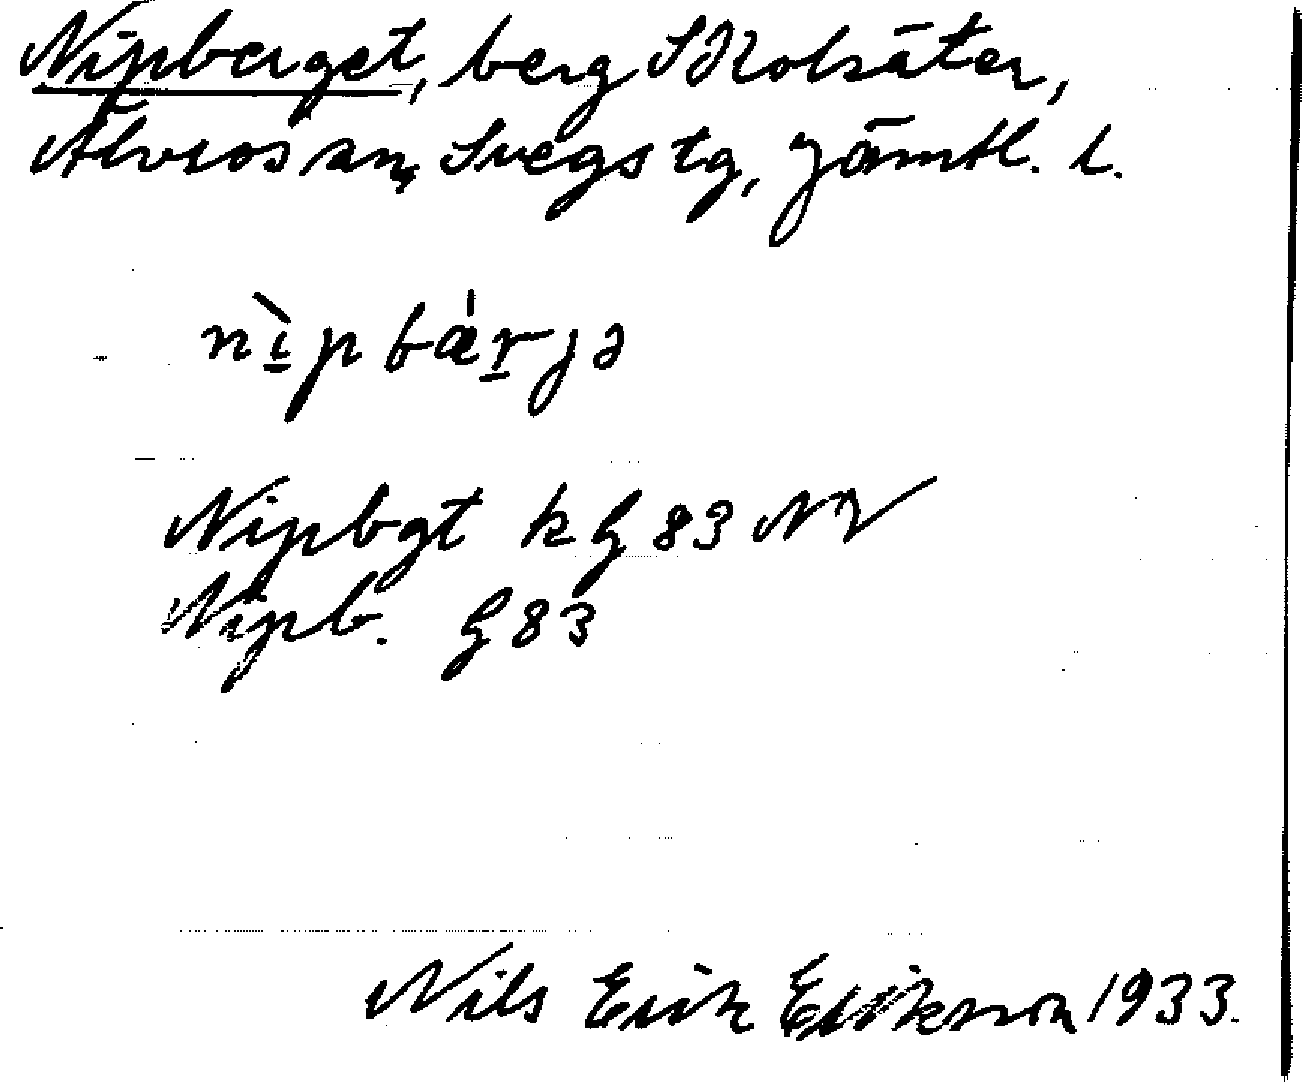 Nipberget, berg S Kolsäter,
Älvros sn, Svegs tg, Jämtl. l.
nìpbárjə
Nipbgt kG 83 NV
Nipb. G 83
Nils Erik Eriksson 1933.